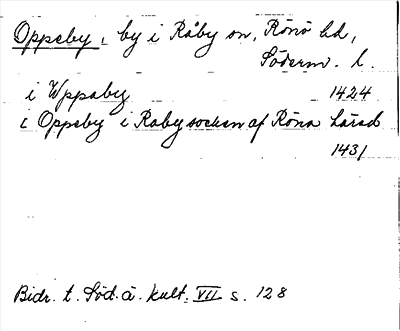 Oppeby, by i Råby sn, Rönö hd,
Söderm. l.
i Wppaby 1424
i Oppeby i Raby socken af Röna härad
1431
Bidr. t. Söd. ä. kult. VII s. 128